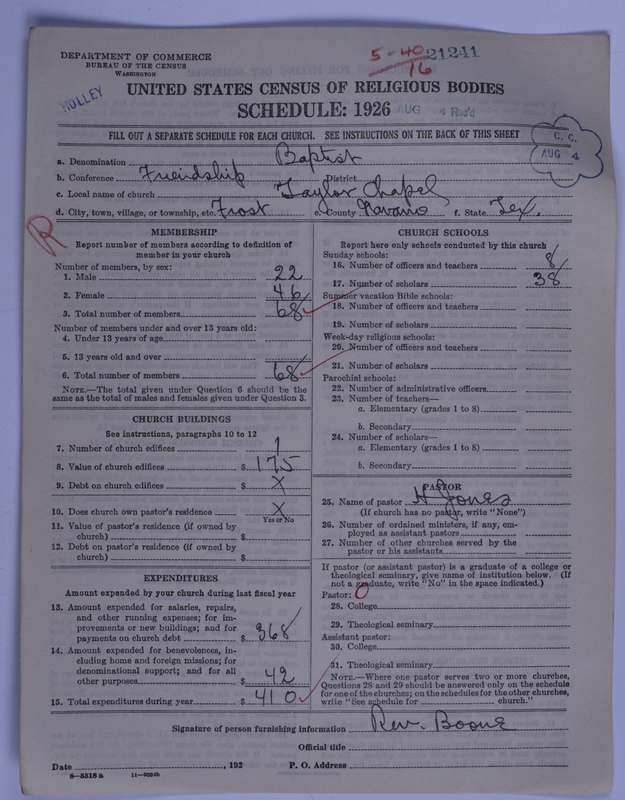 5-40 21241
16
DEPARTMENT OF COMMERCE
BUREAU OF THE CENSUS
WASHINGTON
HOLLEY
UNITED STATES CENSUS OF RELIGIOUS BODIES
SCHEDULE: 1926
AUG 4 Rec'd
FILL OUT A SEPARATE SCHEDULE FOR EACH CHURCH. SEE INSTRUCTIONS ON THE BACK OF THIS SHEET
C. C.
AUG 4
a. Denomination Baptist
b. Conference Friendship District
c. Local name of church Taylor Chapel
d. City, town, village, or township, etc. Frost e. County Navarro f. State Tex.
R
MEMBERSHIP
Report number of members according to definition of
member in your church
Number of members, by sex:
1. Male 22
2. Female 46
3. Total number of members 68
Number of members under and over 13 years old:
4. Under 13 years of age
5. 13 years old and over
6. Total number of members 68
NOTE.—The total given under Question 6 should be
same as the total of males and females given under Question 3.
CHURCH BUILDINGS
See instructions, paragraphs 10 to 12
7. Number of church edifices 1
8. Value of church edifices $ 175
9. Debt on church edifices $ X
10. Does church own pastor's residence X
Yes or No
11. Value of pastor's residence (if owned by
church) $
12. Debt on pastor's residence (if owned by
church) $
EXPENDITURES
Amount expended by your church during last fiscal year
13. Amount expended for salaries, repairs,
and other running expenses; for im-
provements or new buildings; and for
payments on church debt $ 368
14. Amount expended for benevolences, in-
cluding home and foreign missions; for
denominational support; and for all
other purposes $ 42
15. Total expenditures during year $ 410
CHURCH SCHOOLS
Report here only schools conducted by this church
Sunday schools:
16. Number of officers and teachers 8
17. Number of scholars 38
Summer vacation Bible schools:
18. Number of officers and teachers
19. Number of scholars
Week-day religious schools:
20. Number of officers and teachers
21. Number of scholars
Parochial schools:
22. Number of administrative officers
23. Number of teachers—
a. Elementary (grades 1 to 8)
b. Secondary
24. Number of scholars—
a. Elementary (grades 1 to 8)
b. Secondary
PASTOR
25. Name of pastor H Jones
(If church has no pastor, write "None")
26. Number of ordained ministers, if any, em-
ployed as assistant pastors
27. Number of other churches served by the
pastor or his assistants
If pastor (or assistant pastor) is a graduate of a college or
theological seminary, give name of institution below. (If
not a graduate, write "No" in the space indicated.)
Pastor: 0
28. College
29. Theological seminary
Assistant pastor:
30. College
31. Theological seminary
NOTE.—Where one pastor serves two or more churches,
Questions 28 and 29 should be answered only on the schedule
for one of the churches; on the schedules for the other churches,
write "See schedule for church."
Signature of person furnishing information Rev. Boone
Official title
Date , 192 P. O. Address
8-5318a 11-9034b